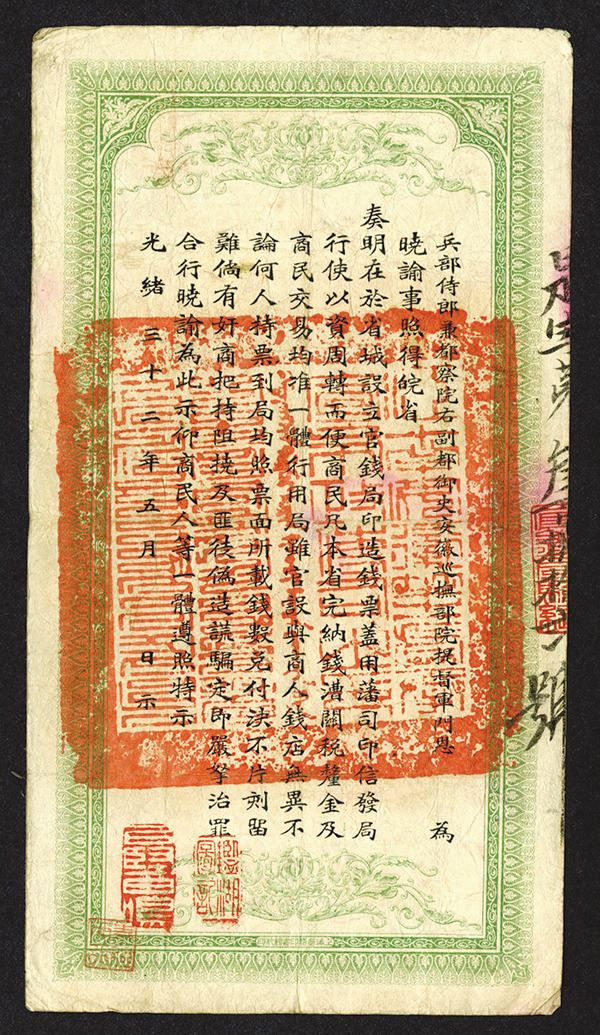 兵部侍郎兼都察院右副都御史安徽巡撫部院提督軍門恩 為
曉諭事照得皖省
奏明在於省城設立官錢局印造錢票蓋用藩司印信發局
行使以資周轉而便商民凡本省完納錢漕關稅釐金及
商民交易均准一體行用局雖官設與商人錢店無異不
論何人持票到局均照票面所載錢數兌付決不片刻留
難倘有奸商把持阻撓及匪徒偽造謊騙定即嚴拏治罪
合行曉諭為此示仰商民人等一體遵照特示
光緒三十二年五月 日示